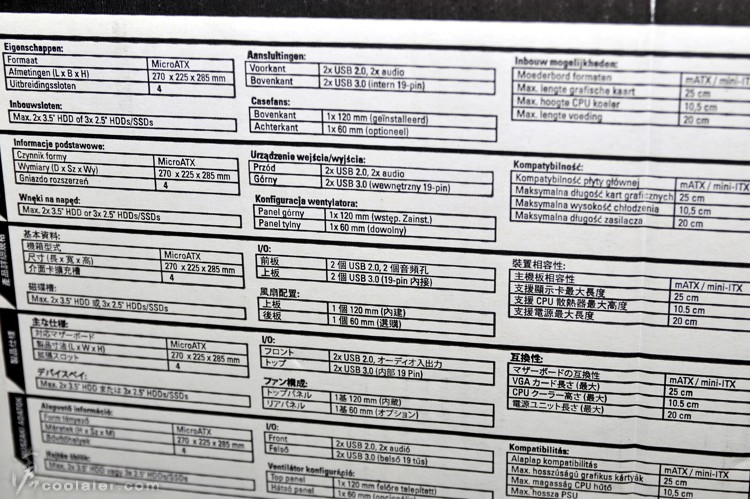 Eigenschappen:
Formaat MicroATX
Afmetingen (L x B x H) 270 x 225 x 285 mm
Uitbreidingssloten 4
Inbouwsloten:
Max. 2x 3.5" HDD of 3x 2.5" HDDs/SSDs
Aansluitingen:
Voorkant 2x USB 2.0, 2x audio
Bovenkant 2x USB 3.0 (intern 19-pin)
Casefans:
Bovenkant 1x 120 mm (geïnstalleerd)
Achterkant 1x 60 mm (optioneel)
Inbouw mogelijkheden:
Moederbord formaten mATX / mini-ITX
Max. lengte grafische kaart 25 cm
Max. hoogte CPU koeler 10,5 cm
Max. lengte voeding 20 cm
Informacje podstawowe:
Czynnik formy MicroATX
Wymiary (D x Sz x Wy) 270 x 225 x 285 mm
Gniazdo rozszerzeń 4
Wnęki na napęd:
Max. 2x 3.5" HDD or 3x 2.5" HDDs/SSDs
Urządzenie wejścia/wyjścia:
Przód 2x USB 2.0, 2x audio
Górny 2x USB 3.0 (wewnętrzny 19-pin)
Konfiguracja wentylatora:
Panel górny 1x 120 mm (wstęp. Zainst.)
Panel tylny 1x 60 mm (dowolny)
Kompatybilność:
Kompatybilność płyty głównej mATX / mini-ITX
Maksymalna długość kart graficznych 25 cm
Maksymalna wysokość chłodzenia 10,5 cm
Maksymalna długość zasilacza 20 cm
產品詳細規格
基本資料:
機箱型式 MicroATX
尺寸 (長 x 寬 x 高) 270 x 225 x 285 mm
介面卡擴充槽 4
磁碟槽:
Max. 2x 3.5" HDD 或 3x 2.5" HDDs/SSDs
I/O:
前板 2 個 USB 2.0, 2 個音頻孔
上板 2 個 USB 3.0 (19-pin 內接)
風扇配置:
上板 1 個 120 mm (內建)
後板 1 個 60 mm (選購)
裝置相容性:
主機板相容性 mATX / mini-ITX
支援顯示卡最大長度 25 cm
支援 CPU 散熱器最大高度 10.5 cm
支援電源最大長度 20 cm
製品仕様
主な仕様:
対応マザーボード MicroATX
製品寸法 (L x W x H) 270 x 225 x 285 mm
拡張スロット 4
デバイスベイ:
Max. 2x 3.5" HDD または 3x 2.5" HDDs/SSDs
I/O:
フロント 2x USB 2.0, オーディオ入出力
トップ 2x USB 3.0 (内部 19 Pin)
ファン構成:
トップパネル 1基 120 mm (内蔵)
リアパネル 1基 60 mm (オプション)
互換性:
マザーボードの互換性 mATX / mini-ITX
VGA カード長さ (最大) 25 cm
CPU クーラー高さ (最大) 10.5 cm
電源ユニット長さ (最大) 20 cm
MŰSZAKI ADATOK
Alapvető információ:
Form tényező MicroATX
Méretek (H x Sz x M) 270 x 225 x 285 mm
Bővítőhelyek 4
Max. 2x 3.5" HDD vagy 3x 2.5" HDDs/SSDs
I/O:
Front 2x USB 2.0, 2x audio
Felső 2x USB 3.0 (belső 19 tüs)
Ventilátor konfiguráció:
Top panel 1x 120 mm (felőre telepített)
Hátsó panel 1x 60 mm
Kompatibilitás:
Alaplap kompatibilitás mATX / mini-ITX
Max. hosszúságú grafikus kártyák 25 cm
Max. magasság CPU hűtő 10,5 cm
Max. hossza PSU 20 cm
coolaler.com